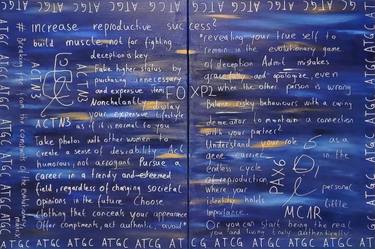 ATGC ATGC ATGC ATGC AT
# increase reproductive success?
build muscle not for fighting,
deception is key
Fake higher status by
purchasing unnecessary
and expensive items
Nonchalantly display
your expensive lifestyle
as if it is normal to you
ACTN3
ACTN3
Take photos with other women to
create a sense of desirability. Act
humorous, not arrogant. Pursue a
career in a trendy and esteemed
field, regardless of changing societal
opinions in the future. Choose
clothing that conceals your appearance
Offer compliments, act authentic, avoid
FOXP2
revealing your true self to
remain in the evolutionary game
of deception. Admit mistakes
gracefully and apologize, even
when the other person is wrong
Balance risky behaviours with a caring
demeanor to maintain a connection
with your partner?
Understand your role as a
gene carrier in the
endless cycle
of reproduction
where your personal
identity holds little
importance.
PAX6
MC1R
Or you can start being the real
you and living truly authentically
ATGC ATGC ATGC ATGC AT CG ATGC ATGC ATGC ATGC